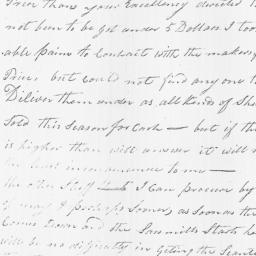 Price than your Excellency decided t
not been to be got under 5 Dollars I too
able pains to Contract with the makers
Prices but could not find any one t
Diliver them under as all kinds of Sh
Sold this Season for Cash — but if th
is higher than will answer it will n
the least inconvenience to me —
the other Stuff I Can procure by
of may & perhaps Sooner as soon as the
Comes Down and the Sawmills Starts h
will be no dificulty in Geting the Scant